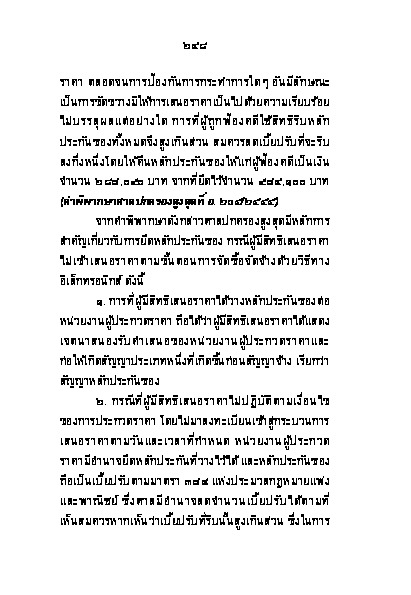 ๒๙๘
ราคา ตลอดจนการป้องกันการกระทำการใดๆ อันมีลักษณะ
เป็นการขัดขวางมิให้การเสนอราคาเป็นไปด้วยความเรียบร้อย
ไม่บรรลุผลแต่อย่างใด การที่ผู้ถูกฟ้องคดีใช้สิทธิริบหลัก
ประกันซองทั้งหมดจึงสูงเกินส่วน สมควรลดเบี้ยปรับที่จะริบ
ลงกึ่งหนึ่งโดยให้คืนหลักประกันซองให้แก่ผู้ฟ้องคดีเป็นเงิน
จำนวน ๒๘๘,๐๕๐ บาท จากที่ยึดไว้จำนวน ๕๘๔,๑๐๐ บาท
(คำพิพากษาศาลปกครองสูงสุดที่ อ. ๒๐๗/๒๕๕๕)
จากคำพิพากษาดังกล่าวศาลปกครองสูงสุดมีหลักการ
สำคัญเกี่ยวกับการยึดหลักประกันซอง กรณีผู้มีสิทธิเสนอราคา
ไม่เข้าเสนอราคาตามขั้นตอนการจัดซื้อจัดจ้างด้วยวิธีทาง
อิเล็กทรอนิกส์ ดังนี้
๑. การที่ผู้มีสิทธิเสนอราคาได้วางหลักประกันซองต่อ
หน่วยงานผู้ประกวดราคา ถือได้ว่าผู้มีสิทธิเสนอราคาได้แสดง
เจตนาสนองรับคำเสนอของหน่วยงานผู้ประกวดราคาและ
ก่อให้เกิดสัญญาประเภทหนึ่งที่เกิดขึ้นก่อนสัญญาจ้าง เรียกว่า
สัญญาหลักประกันซอง
๒. กรณีที่ผู้มีสิทธิเสนอราคาไม่ปฏิบัติตามเงื่อนไข
ของการประกวดราคา โดยไม่มาลงทะเบียนเข้าสู่กระบวนการ
เสนอราคาตามวันและเวลาที่กำหนด หน่วยงานผู้ประกวด
ราคามีอำนาจยึดหลักประกันที่วางไว้ได้ และหลักประกันซอง
ถือเป็นเบี้ยปรับตามมาตรา ๓๘๔ แห่งประมวลกฎหมายแพ่ง
และพาณิชย์ ซึ่งศาลมีอำนาจลดจำนวนเบี้ยปรับได้ตามที่
เห็นสมควรหากเห็นว่าเบี้ยปรับที่ริบนั้นสูงเกินส่วน ซึ่งในการ